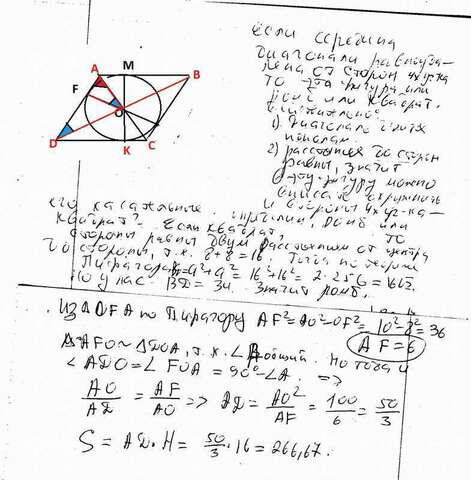 если середина
диагонали равноуда-
лена от сторон
то эта фигура или
ромб или квадрат.
1) диагонали
2) расстояния до сторон
равны, значит
в эту фигуру можно
вписать окружность
и стороны
его касательные
ромб или
квадрат? Если квадрат, то
стороны равны двум расстояниям от центра
до стороны, т.к. 8+8=16. Тогда по теореме
Пифагора a²+a² = 16²+16² = 2·256 =
Но у нас BD = 34. Значит ромб.
A M B
F
O
D K C
Из ΔOFA по Пифагору AF²=AO²-OF²=10²-8²=36
AF=6
ΔAFO~ΔDOA, т.к. ∠A общий. Но тогда и
∠ADO=∠FOA = 90°-∠A. =>
AO/AD = AF/AO => AD = AO²/AF = 100/6 = 50/3
S = AD·H = 50/3 · 16 = 266,67.